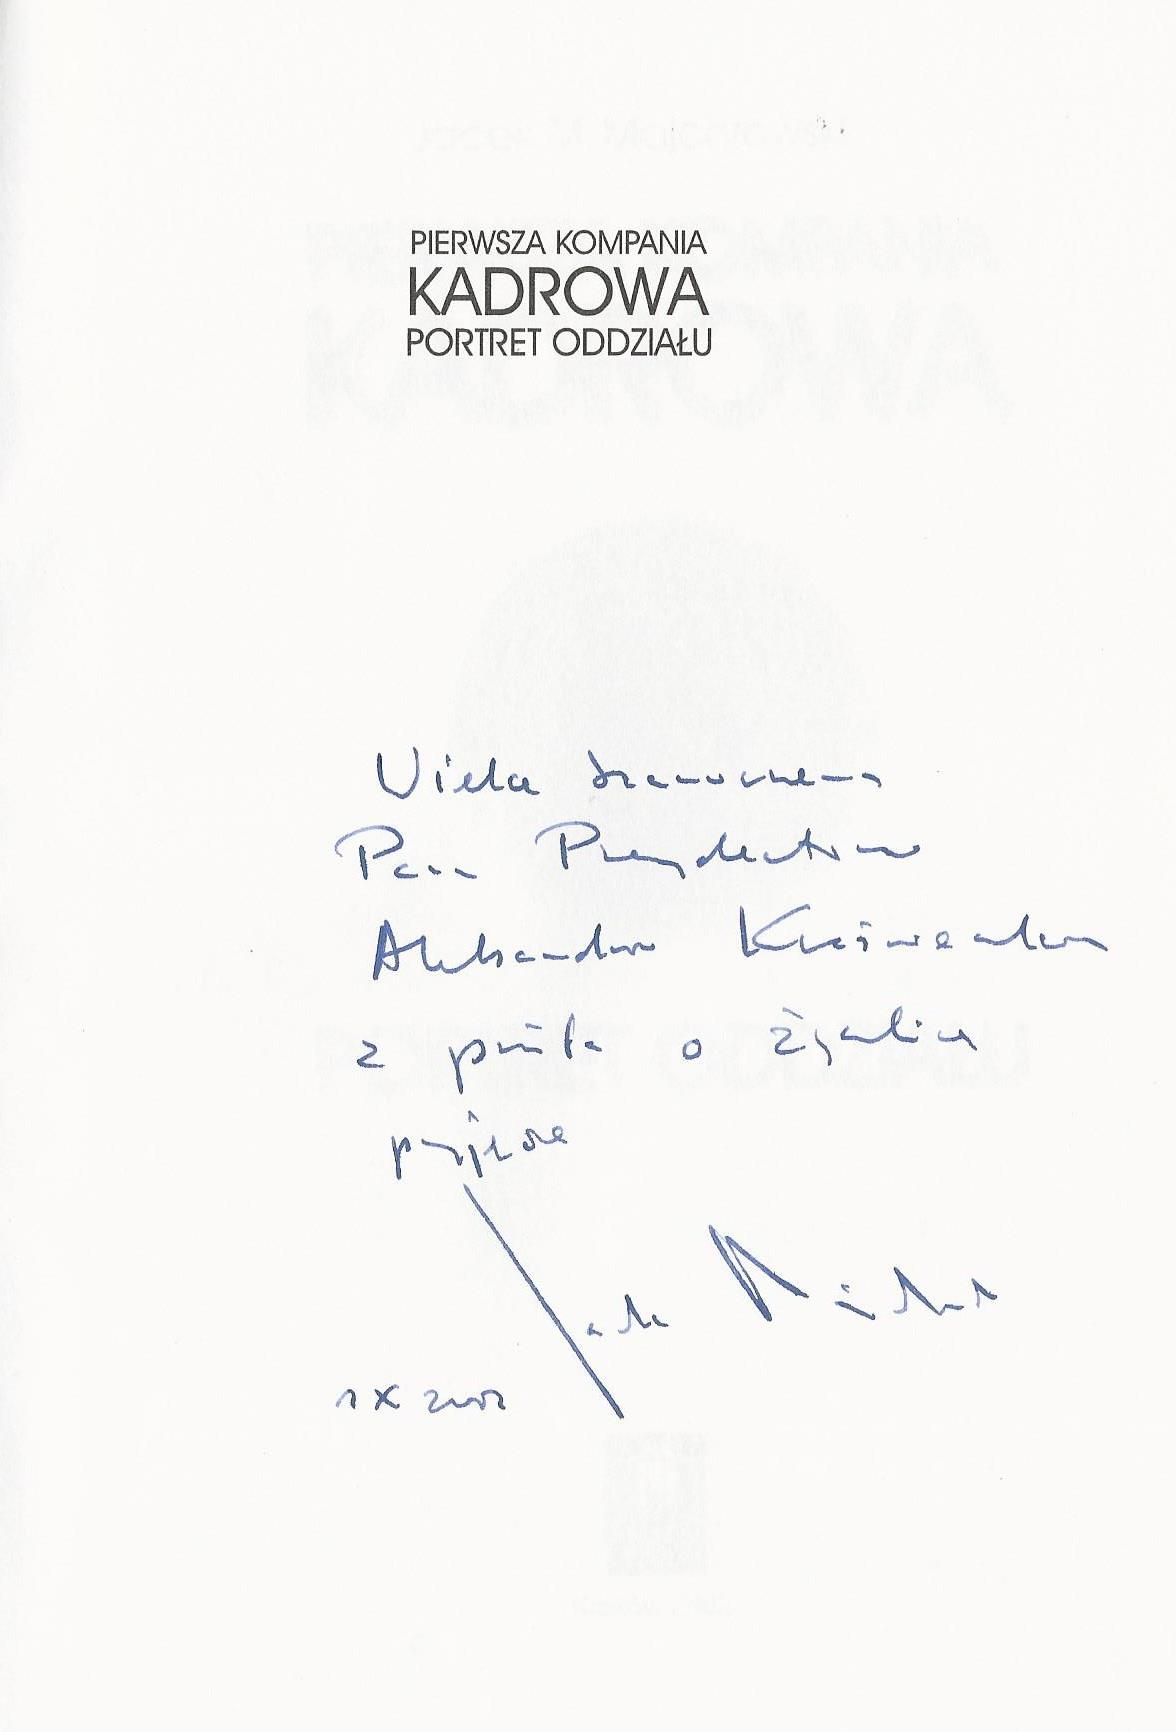 PIERWSZA KOMPANIA
KADROWA
PORTRET ODDZIAŁU
Wielce Szanownemu
Panu Prezydentowi
Aleksandrowi Kwaśniewskiemu
z prośbą o życzliwe
przyjęcie
1 X 2002